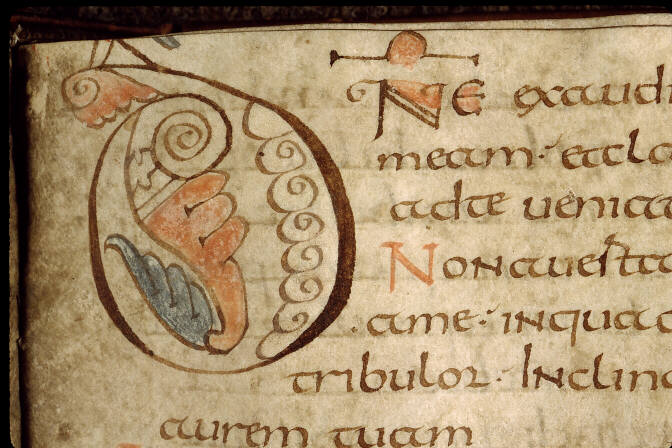 DNE exaudi
meam· et cla
ad te ueniat
Non auerta
a me· in qua
tribulor· Inclina
aurem tuam